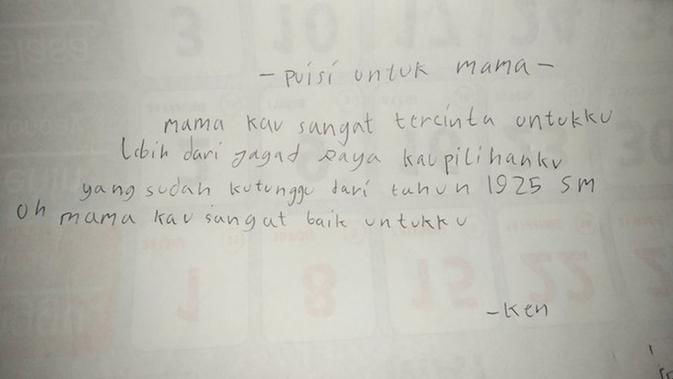 - puisi untuk mama -
mama kau sangat tercinta untukku
lebih dari jagad raya kau pilihanku
yang sudah kutunggu dari tahun 1925 SM
oh mama kau sangat baik untukku
- Ken